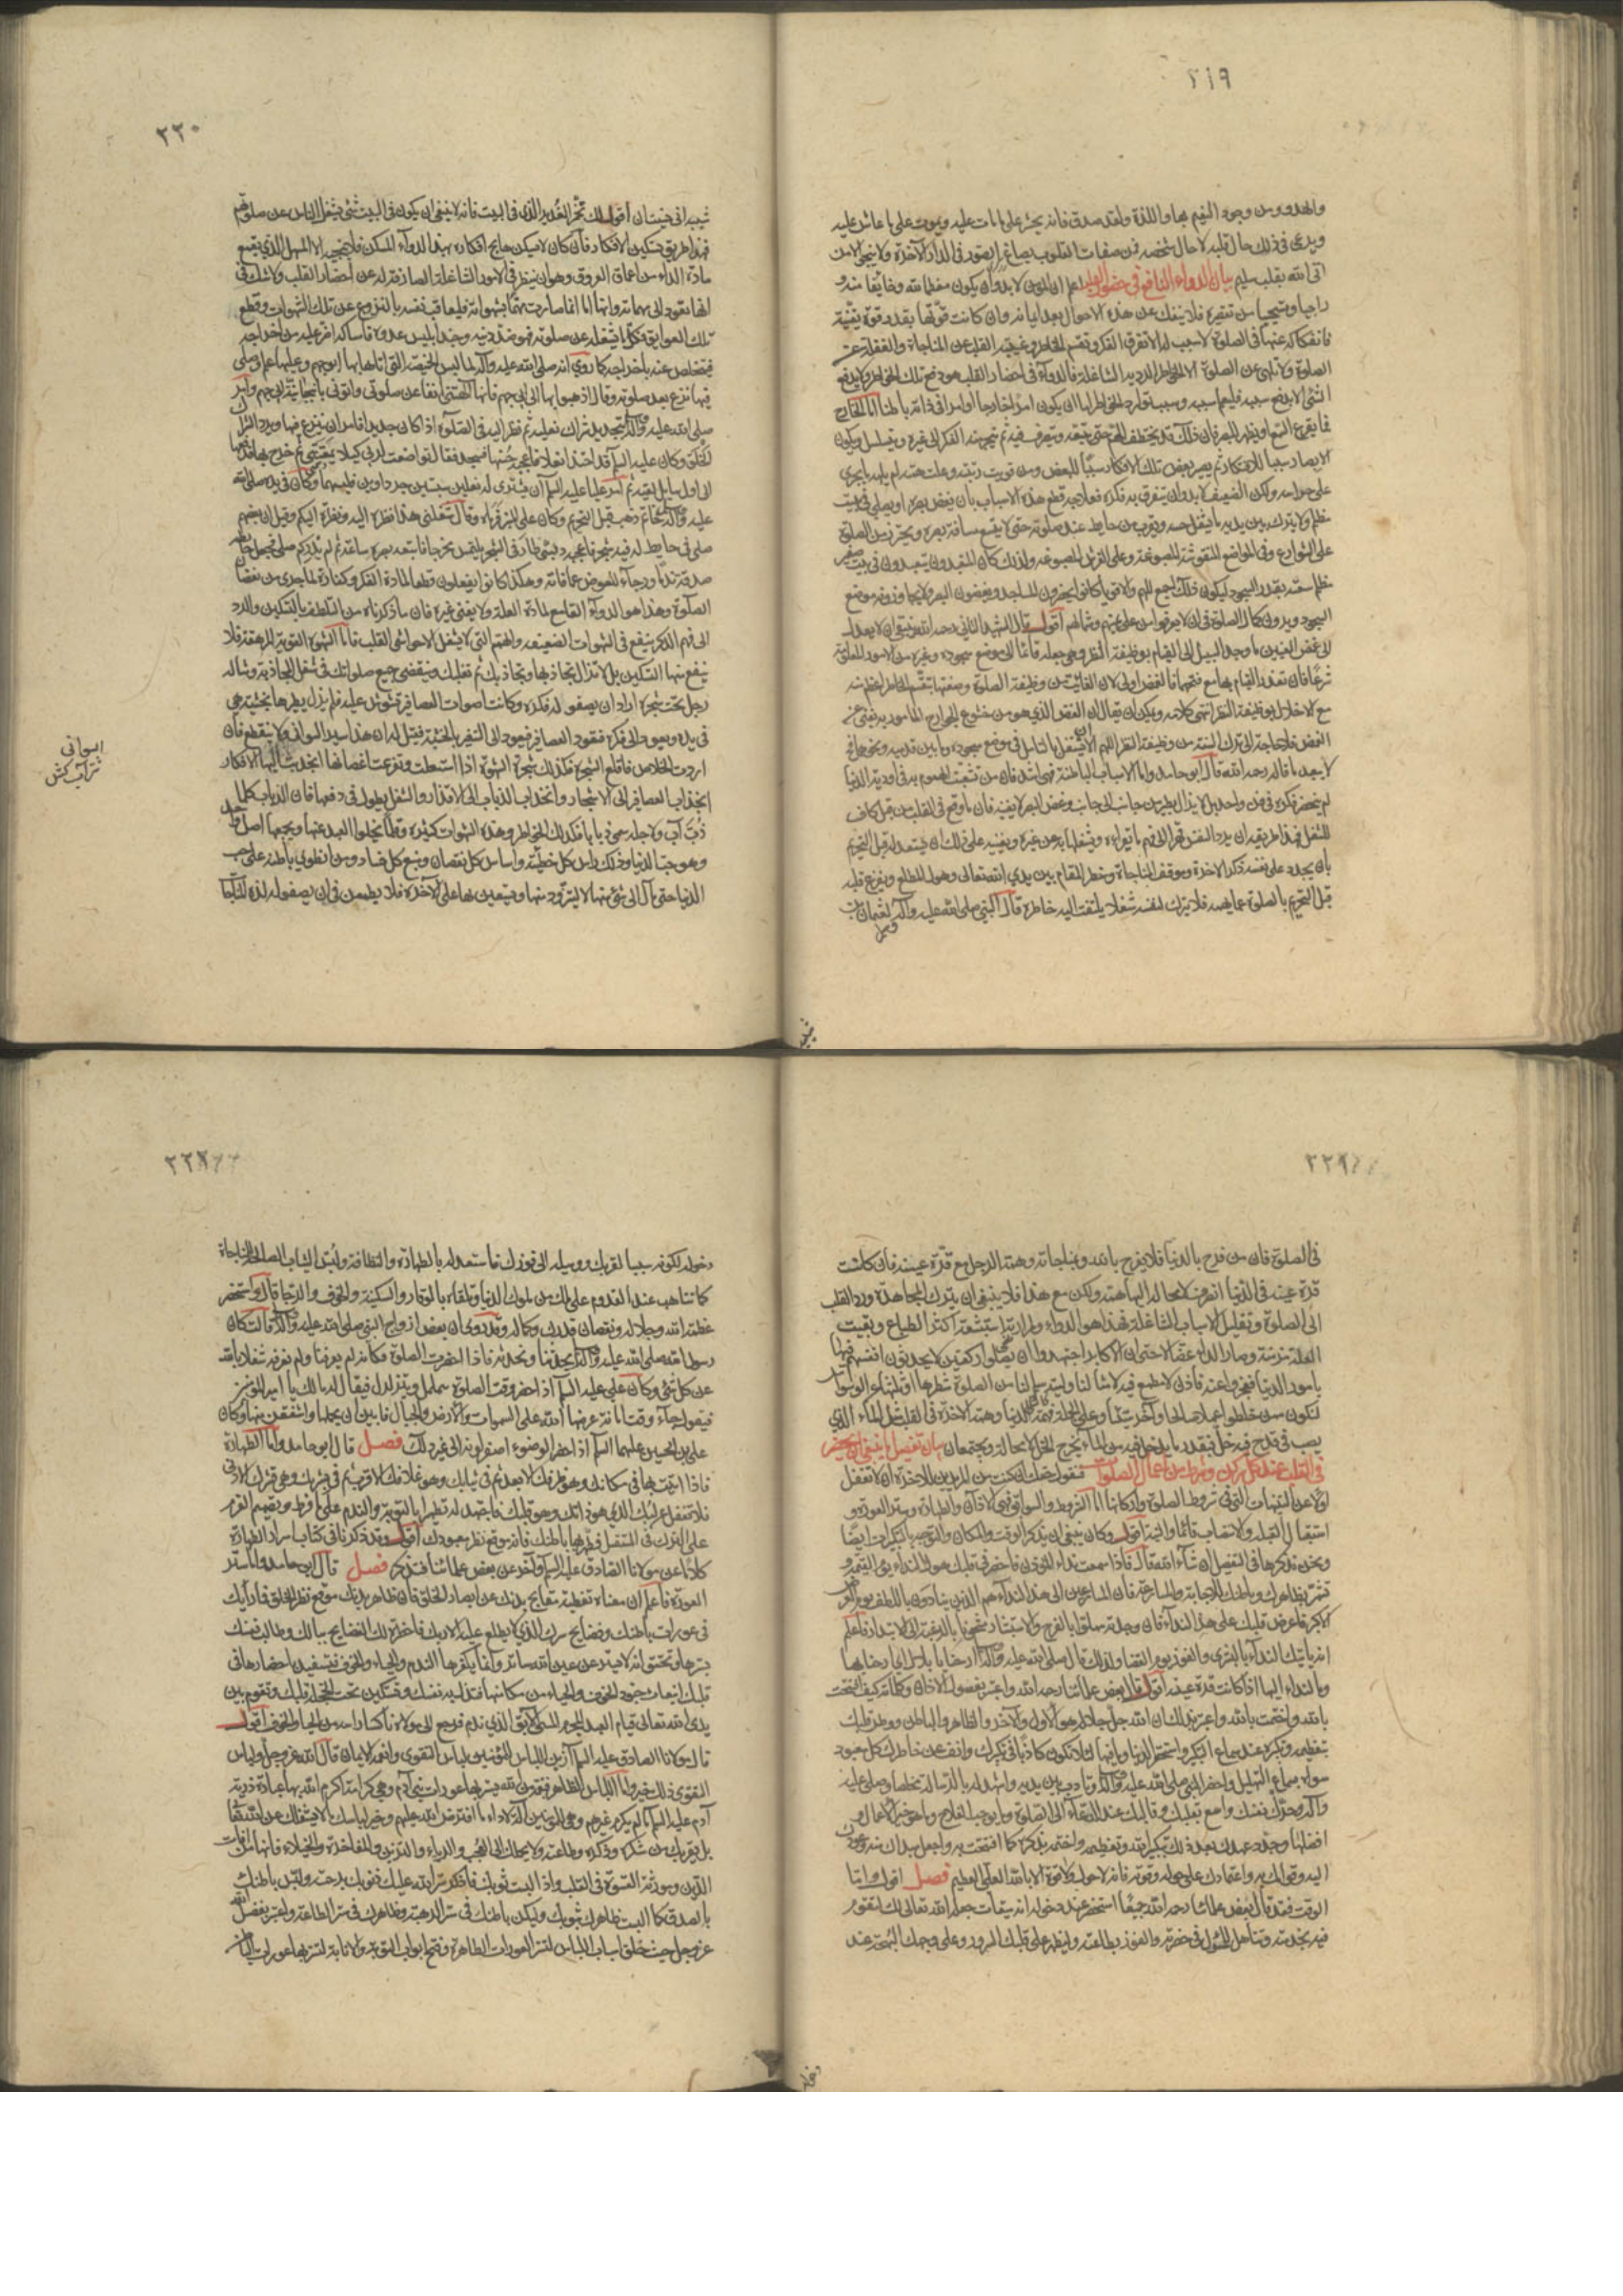 ٢١٩
والهدوء من وجود النعيم بها واللذة ولقد صدق فانه يحشر على ما مات عليه ويموت على ما عاش عليه
ويدعى في ذلك حال قلبه لا حال شخصه فمن صفات القلوب يصاغ الصور في الدار الآخرة ولا ينجو الا من
اتى الله بقلب سليم بيان الدواء النافع في حضور القلب اعلم ان المؤمن لا بد وأن يكون معظما لله وخائفا منه و
راجيا ومستحييا من تقصيره فلا ينفك عن هذه الاحوال بعد ايمانه وان كانت قوتها بقدر قوة يقينه
فانفكاكه عنها في الصلوة لا سبب له الا تفرق الفكر وتقسم الخاطر وغيبة القلب عن المناجاة والغفلة عن
الصلوة ولا يلهى عن الصلوة الا الخواطر الرديه الشاغلة فالدواء في احضار القلب هو دفع تلك الخواطر ولا يدفع
الشئ الا بدفع سببه فليعلم سببه وسبب توارد الخواطر اما ان يكون امرا خارجا او امرا في ذاته باطنا اما الخارج
فما يقرع السمع او يظهر للبصر فان ذلك قد يختطف الهم حتى يتبعه ويتصرف فيه ثم ينجر منه الفكر الى غيره ويتسلسل ويكون
الابصار سببا للافتكار ثم يصير بعض تلك الافكار سببا للبعض ومن قويت رتبته وعلت همته لم يلهه ما يجرى
على حواسه ولكن الضعيف لا بد وان يتفرق به فكره فعلاجه قطع هذه الاسباب بان يغض بصره او يصلي في بيت
مظلم ولا يترك بين يديه ما يشغل حسه ويقرب من حايط عند صلوته حتى لا يتسع مسافة بصره ويحترز من الصلوة
على الشوارع وفي المواضع المنقوشة المصبوغة وعلى الفرش المصبوغة ولذلك كان المتعبدون يتعبدون في بيت صغير
مظلم سعته بقدر السجود ليكون ذلك اجمع للهم والاقوياء كانوا يحضرون المساجد ويغضون البصر ولا يجاوزون به موضع
السجود ويرون كمال الصلوة في ان لا يعرفوا من على يمينهم وشمالهم أقول قال الشهيد الثاني رحمه الله وينبغي ان لا يعدل
الى غض العينين ما وجد السبيل الى القيام بوظيفة النظر وهي جعله قائما الى موضع سجوده وغيره من الامور المعلومة
شرعا فان تعذر القيام بها مع فتحهما فالغض اولى لان الفائت من وظيفة الصلوة وصفتها بتقسم الخاطر اعظم منه
مع الاخلال بوظيفة النظر انتهى كلامه ويمكن ان يقال ان الغض الذي هو من خشوع الجوارح المأمور به يغني عن
الغمض فلا حاجة الى ترك السنة من وظيفة النظر اللهم الا ان يشتغل بالتأمل في موضع سجوده وما بين قدميه ونحوهما فح
لا يبعد ما قاله رحمه الله قال ابو حامد واما الاسباب الباطنة فهي اشد فان من تشعبت الهموم به في اودية الدنيا
لم ينحصر فكره في فن واحد بل لا يزال يطير من جانب الى جانب وغض البصر لا يغنيه فان ما وقع في القلب من قبل كاف
للشغل فهذا طريقه ان يرد النفس قهرا الى فهم ما يقراه ويشغلها به عن غيره ويعينه على ذلك ان يستعد له قبل التحريم
بان يجدد على نفسه ذكر الاخرة وموقف المناجاة وخطر المقام بين يدي الله تعالى وهول المطلع ويفرغ قلبه
قبل التحريم بالصلوة عما يهمه فلا يترك لنفسه شغلا يلتفت اليه خاطره قال النبي صلى الله عليه وآله لعثمان بن
٢٢٠
شيبة اني نسيت ان أقول لك تخمر القدر الذي في البيت فانه لا ينبغي ان يكون في البيت شئ يشغل الناس عن صلوتهم
فهذا طريق تسكين الافكار فان كان لا يسكن هايج افكاره بهذا الدواء المسكن فلا ينجيه الا المسهل الذي يقمع
مادة الداء من اعماق العروق وهو ان ينظر في الامور الشاغلة الصارفة له عن احضار القلب ولا شك في
انها تعود الى مهماته وانها انما صارت مهمات بشهواته فليعاقب نفسه بالنزوع عن تلك الشهوات وقطع
تلك العوايق فكل ما يشغله عن صلوته فهو ضد دينه وجند ابليس عدوه فامساكه اضر عليه من اخراجه
فيتخلص عنه باخراجه كما روي انه صلى الله عليه وآله لما لبس الخميصة التي اتاه بها ابو جهم وعليها علم وصلى
فيها نزع بعد صلوته وقال اذهبوا بها الى ابي جهم فانها الهتني آنفا عن صلوتي وائتوني بانبجانية ابي جهم وامر
صلى الله عليه وآله بتجديد شراك نعليه ثم نظر اليه في الصلوة اذ كان جديدا فامر ان ينزع منها ويرد الشراك
الخلق وكان عليه السلم قد احتذى نعلا فاعجبه حسنها فسجد فقال تواضعت لربي كيلا يمقتني ثم خرج بها فدفعها
الى اول سايل لقيه ثم امر عليا عليه السلم ان يشترى له نعلين سبتيين جرداوين فلبسهما وكان في يده صلى الله
عليه وآله خاتم ذهب قبل التحريم وكان على المنبر فرماه وقال شغلني هذا نظرة اليه ونظرة اليكم وقيل ان بعضهم
صلى في حايط له فيه شجر فاعجبه دبسي طار في الشجر يلتمس مخرجا فاتبعه بصره ساعة ثم لم يدر كم صلى فجعل حايطه
صدقة ندما ورجاء للعوض عما فاته وهكذا كانوا يفعلون قطعا لمادة الفكر وكفارة لما جرى من نقصان
الصلوة وهذا هو الدواء القامع لمادة العلة ولا يغني غيره فان ما ذكرناه من التلطف بالتسكين والرد
الى فهم الذكر ينفع في الشهوات الضعيفة والهمم التي لا يشغل الا حواشي القلب فاما الشهوة القوية المرهقة فلا
ينفع فيها التسكين بل لا تزال تجاذبها وتجاذبك ثم تغلبك وينقضي جميع صلواتك في شغل المجاذبة ومثاله
رجل تحت شجرة اراد ان يصفو له فكره وكانت اصوات العصافير تشوش عليه فلم يزل يطيرها بخشبة هي
في يده ويعود الى فكره فتعود العصافير فيعود الى التنفير بالخشبة فقيل له ان هذا سير السواني ولا ينقطع فان
اردت الخلاص فاقلع الشجرة فكذلك شجرة الشهوة اذا استعلت وتفرعت اغصانها انجذبت اليها الافكار
انجذاب العصافير الى الاشجار وانجذاب الذباب الى الاقذار والشغل يطول في دفعها فان الذباب كلما
ذب آب ولاجله سمي ذبابا فكذلك الخواطر وهذه الشهوات كثيرة وقلما يخلوا العبد عنها ويجمعها اصل واحد
وهو حب الدنيا وذلك راس كل خطيئة واساس كل نقصان ومنبع كل فساد ومن انطوى باطنه على حب
الدنيا حتى مال الى شئ منها لا ليتزود منها ويستعين بها على الآخرة فلا يطمعن في ان يصفو له لذة المناجاة
السوانى
شتر آب كش
٢٢١
في الصلوة فان من فرح بالدنيا فلا يفرح بالله وبمناجاته وهمة الرجل مع قرة عينه فان كانت
قرة عينه في الدنيا انصرف لا محالة اليها همته ولكن مع هذا فلا ينبغي ان يترك المجاهدة ورد القلب
الى الصلوة وتقليل الاسباب الشاغلة فهذا هو الدواء ولمرارته استبشعته اكثر الطباع وبقيت
العلة مزمنة وصار الداء عضالا حتى ان الاكابر اجتهدوا ان يصلوا ركعتين لا يحدثون انفسهم فيها
بامور الدنيا فعجزوا عنه فاذن لا مطمع فيه لامثالنا وليته سلم لنا من الصلوة شطرها او ثلثها من الوسواس
لنكون ممن خلطوا عملا صالحا وآخر سيئا وعلى الجملة فهمة الدنيا وهمة الاخرة في القلب مثل الماء الذي
يصب في قدح فيه خل فبقدر ما يدخل فيه من الماء يخرج الخل لا محالة ولا يجتمعان بيان تفصيل ما ينبغي ان يحضر
في القلب عند كل ركن وشرط من اعمال الصلوة فنقول حقك ان كنت من المريدين للاخرة ان لا تغفل
اولا عن التنبيهات التي في شروط الصلوة واركانها اما الشروط والسوابق فهي الاذان والطهارة وستر العورة و
استقبال القبلة والانتصاب قائما والنية اقول وكان ينبغي ان يذكر الوقت والمكان والتوجه بالتكبيرات ايضا
ونحن نذكرها في التفصيل ان شاء الله قال فاذا سمعت نداء المؤذن فاحضر في قلبك هول النداء يوم القيمة و
تشمر بظاهرك وباطنك للاجابة والمسارعة فان المسارعين الى هذا النداء هم الذين ينادون باللطف يوم العرض
الاكبر فاعرض قلبك على هذا النداء فان وجدته مملوا بالفرح والاستبشار مشحونا بالرغبة الى الابتدار فاعلم
انه ياتيك النداء بالبشرى والفوز يوم القضاء ولذلك قال صلى الله عليه وآله ارحنا يا بلال اى ارحنا بها
وبالنداء اليها اذ كانت قرة عينه أقول قال بعض علمائنا رحمه الله واعتبر بفصول الاذان وكلماته كيف افتتحت
بالله واختتمت بالله واعتبر بذلك ان الله جل جلاله هو الاول والآخر والظاهر والباطن ووطن قلبك
بتعظيمه وتكبيره عند سماع التكبير واستحقر الدنيا وما فيها لئلا تكون كاذبا في تكبيرك وانف عن خاطرك كل معبود
سواه بسماع التهليل واحضر النبي صلى الله عليه وآله وتادب بين يديه واشهد له بالرسالة مخلصا وصل عليه
وآله وحرك نفسك واسع بقلبك وقالبك عند الدعاء الى الصلوة وما يوجب الفلاح وما هو خير الاعمال و
افضلها وجدد عهدك بعد ذلك بتكبير الله وتعظيمه واختمه بذكره كما افتتحت به واجعل مبداك منه وعودك
اليه وقوامك به واعتمادك على حوله وقوته فانه لا حول ولا قوة الا بالله العلي العظيم فصل اقول واما
الوقت فقد قال بعض علمائنا رحمه الله جميعا استحضر عند دخوله انه ميقات جعله الله تعالى لك لتقوم
فيه بخدمته وتتأهل للمثول في حضرته والفوز بطاعته وليظهر على قلبك السرور وعلى وجهك البهجة عند
٢٢٢
دخوله لكونه سببا لقربك ووسيلة الى فوزك فاستعد له بالطهارة والنظافة ولبس الثياب الصالحة للمناجاة
كما تتاهب عند القدوم على ملك من ملوك الدنيا وتلقاه بالوقار والسكينة والخوف والرجا قال واستحضر
عظمة الله وجلاله ونقصان قدرك وكماله وقد روى ان بعض ازواج النبي صلى الله عليه وآله قالت كان
رسول الله صلى الله عليه وآله يحدثنا ونحدثه فاذا حضرت الصلوة فكأنه لم يعرفنا ولم نعرفه شغلا بالله
عن كل شئ وكان علي عليه السلم اذا حضر وقت الصلوة يتململ ويتزلزل فيقال له ما لك يا امير المؤمنين
فيقول جاء وقت امانة عرضها الله على السموات والارض والجبال فابين ان يحملنها واشفقن منها وكان
علي بن الحسين عليهما السلم اذا حضر الوضوء اصفر لونه الى غير ذلك فصل قال ابو حامد واما الطهارة
فاذا اتيت بها في مكانك وهو ظرفك الابعد ثم في ثيابك وهو غلافك الاقرب ثم في بشرتك وهي قشرك الادنى
فلا تغفل عن لبك الذي هو ذاتك وهو قلبك فاجتهد له تطهيرا بالتوبة والندم على ما فرط وتصميم العزم
على الترك في المستقبل فطهر بها باطنك فانه موقع نظر معبودك أقول وقد ذكرنا في كتاب اسرار الطهارة
كلاما عن مولانا الصادق عليه السلم وآخر عن بعض علمائنا فتذكر فصل قال ابو حامد واما ستر
العورة فاعلم ان معناه تغطية مقابح بدنك عن ابصار الخلق فان ظاهر بدنك موقع نظر الخلق فما رأيك
في عورات باطنك وفضايح سرك الذي لا يطلع عليه الا ربك فاحضر تلك الفضايح ببالك وطالب نفسك
بسترها وتحقق انه لا يستر عن عين الله ساتر وانما يكفرها الندم والحياء والخوف فتستفيد باحضارها في
قلبك انبعاث جنود الخوف والحياء من مكامنها فتذل به نفسك وتستكين تحت الخجلة قلبك وتقوم بين
يدي الله تعالى قيام العبد المجرم المسئ الآبق الذي ندم فرجع الى مولاه ناكسا راسه من الحيا والخوف أقول
قال مولانا الصادق عليه السلم ازين اللباس للمؤمنين لباس التقوى وانعمه الايمان قال الله عز وجل ولباس
التقوى ذلك خير واما اللباس الظاهر فنعمة من الله يستر بها عورات بني آدم وهي كرامة اكرم الله بها عباده ذرية
آدم عليه السلم ما لم يكرم غيرهم وهي للمؤمنين آلة لاداء ما افترض الله عليهم وخير لباسك ما لا يشغلك عن الله تعالى
بل يقربك من شكره وذكره وطاعته ولا يحملك الى العجب والرياء والتزين والمفاخرة والخيلاء فانها من آفات
الدين ومورثة القسوة في القلب واذا لبست ثوبك فاذكر ستر الله عليك ذنوبك برحمته والبس باطنك
بالصدق كما البست ظاهرك بثوبك وليكن باطنك في ستر الرهبة وظاهرك في ستر الطاعة واعتبر بفضل الله
عز وجل حيث خلق اسباب اللباس لتستر العورات الظاهرة وفتح ابواب التوبة والانابة لتستر بها عورات الباطن